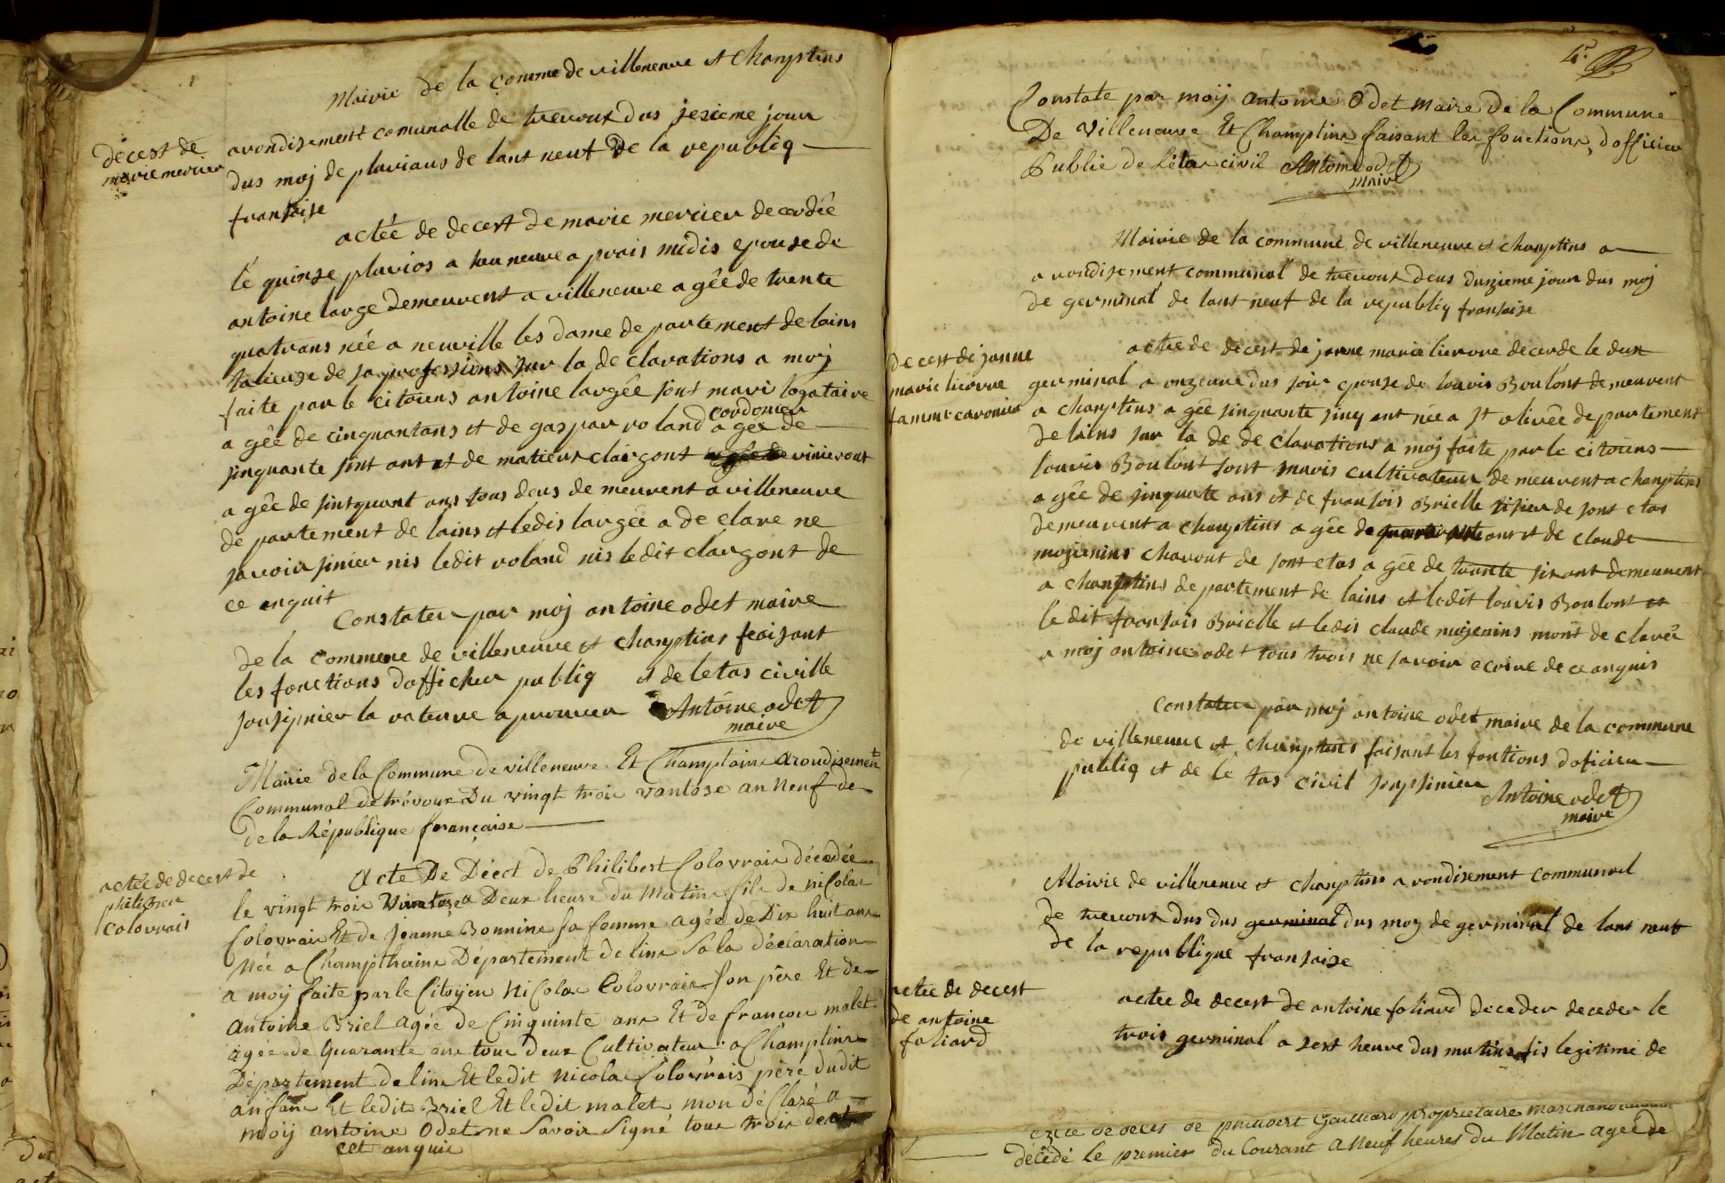 Mairie de la comme de villeneuve et Chanptins
decest de
marie mercier
arondisement comunalle de trevoux dus sesieme jour
dus moj de pluviaus de lant neuf de la republiq
fransaise
actée de decest de marie mercier decedée
le quinse pluvios a heu neuve aprais midis epouse de
antoine large demeurent a villeneuve agêe de trente
quatrans née a neuville les dame departement de lains
de sa profession sur la de clarations a moj
faite par le citoiens antoine largée sont mari
a gée de cinquantans et de gaspar roland agée de
cordonier
sinquante sint ant et de matieux clargont vinieront
a gée de sinsquant ans tous deus de meurent a villeneuve
de partement de lains et ledis largée a de clare ne
savoir sinier nis ledit roland nis ledit clargont de
ce anquit
Constater par moj antoine odet maire
de la commene de villeneuve et chanptins faisant
les fonctions dofficher publiq et de letas civille
sousignier
Antoine odet
maire
Mairie de la Commune de villeneuve Et Champtaine arondisement
Communal de trévoux Du vingt trois vantôse an Neuf de
de la République française
actée de decest de
philiber
colovrais
Acte De Décct de Philibert Colovrais décédée
le vingt trois a Deux heure du Matin fils de nicolas
Colovrais Et de jeanne Bonnine sa femme agée de Dix huit ans
Née a Champthaine Département de lins La déclaration
a moij faite par le Citoyen Nicolas Colovrais son père Et de
antoine Briel agée de Cinquinte ans Et de françois malet
agée de Quarante ans tous deux Cultivateur a Champlins
Département de lins Et ledit Nicolas Colovrais père dudit
anfant Et ledit Briel Et ledit malet mon déClaré a
moij antoine Odet ne Savoir Signé tous trois de
cet anquis
Constate par moij antoine Odet maire de la Commune
De Villeneuve Et Champlins faisant les fonctions dofficier
Public de Létas civil Antoine odet
maire
Mairie de la commune de villeneuve et chanptins a
arondisement communal de trevoux deus dusieme jour dus moj
de germinal de lant neuf de la republiq fransaise
decest de janne
marie lierore
famme
actée de decest de janne marie lierore decede le dus
germinal a onzeure dus soir epouse de louvis Boulont demeurent
a chanptins a gée sinquante sinq ant née a st olivée departement
de lains sur la de de clarations a moj faite par le citoiens
louvis Boulont sont maris cultivateur de meurent a chanptins
a gée de sinquante ans et de fransois Brielle de sont etas
demeurent a chanptins a gée de ant et de claude
mojenins charont de sont etas a gée de trante demeurent
a chanptins de partement de lains et ledit louvis Boulont et
le dit fransois Brielle et ledis claude mojenins mont de clarer
a moj antoine odet tous trois ne savoir ecrire de ce anquis
Constater par moj antoine odet maire de la commune
de villeneuve et chanptins faisant les fontions doficier
publiq et de le tas civil sousinier
Antoine odet
maire
Mairie de villeneuve et chanptins arondisement communal
de trevoux dus dus germinal dus moy de germinal de lant neuf
de la republique fransaise
actée de decest
de antoine
foliard
actée de decest de antoine foliard deceder deceder le
trois germinal a sest heure dus matins fis legitime de
propriétaire
décédé le premier du Courant a Neuf heures du Matin agée de